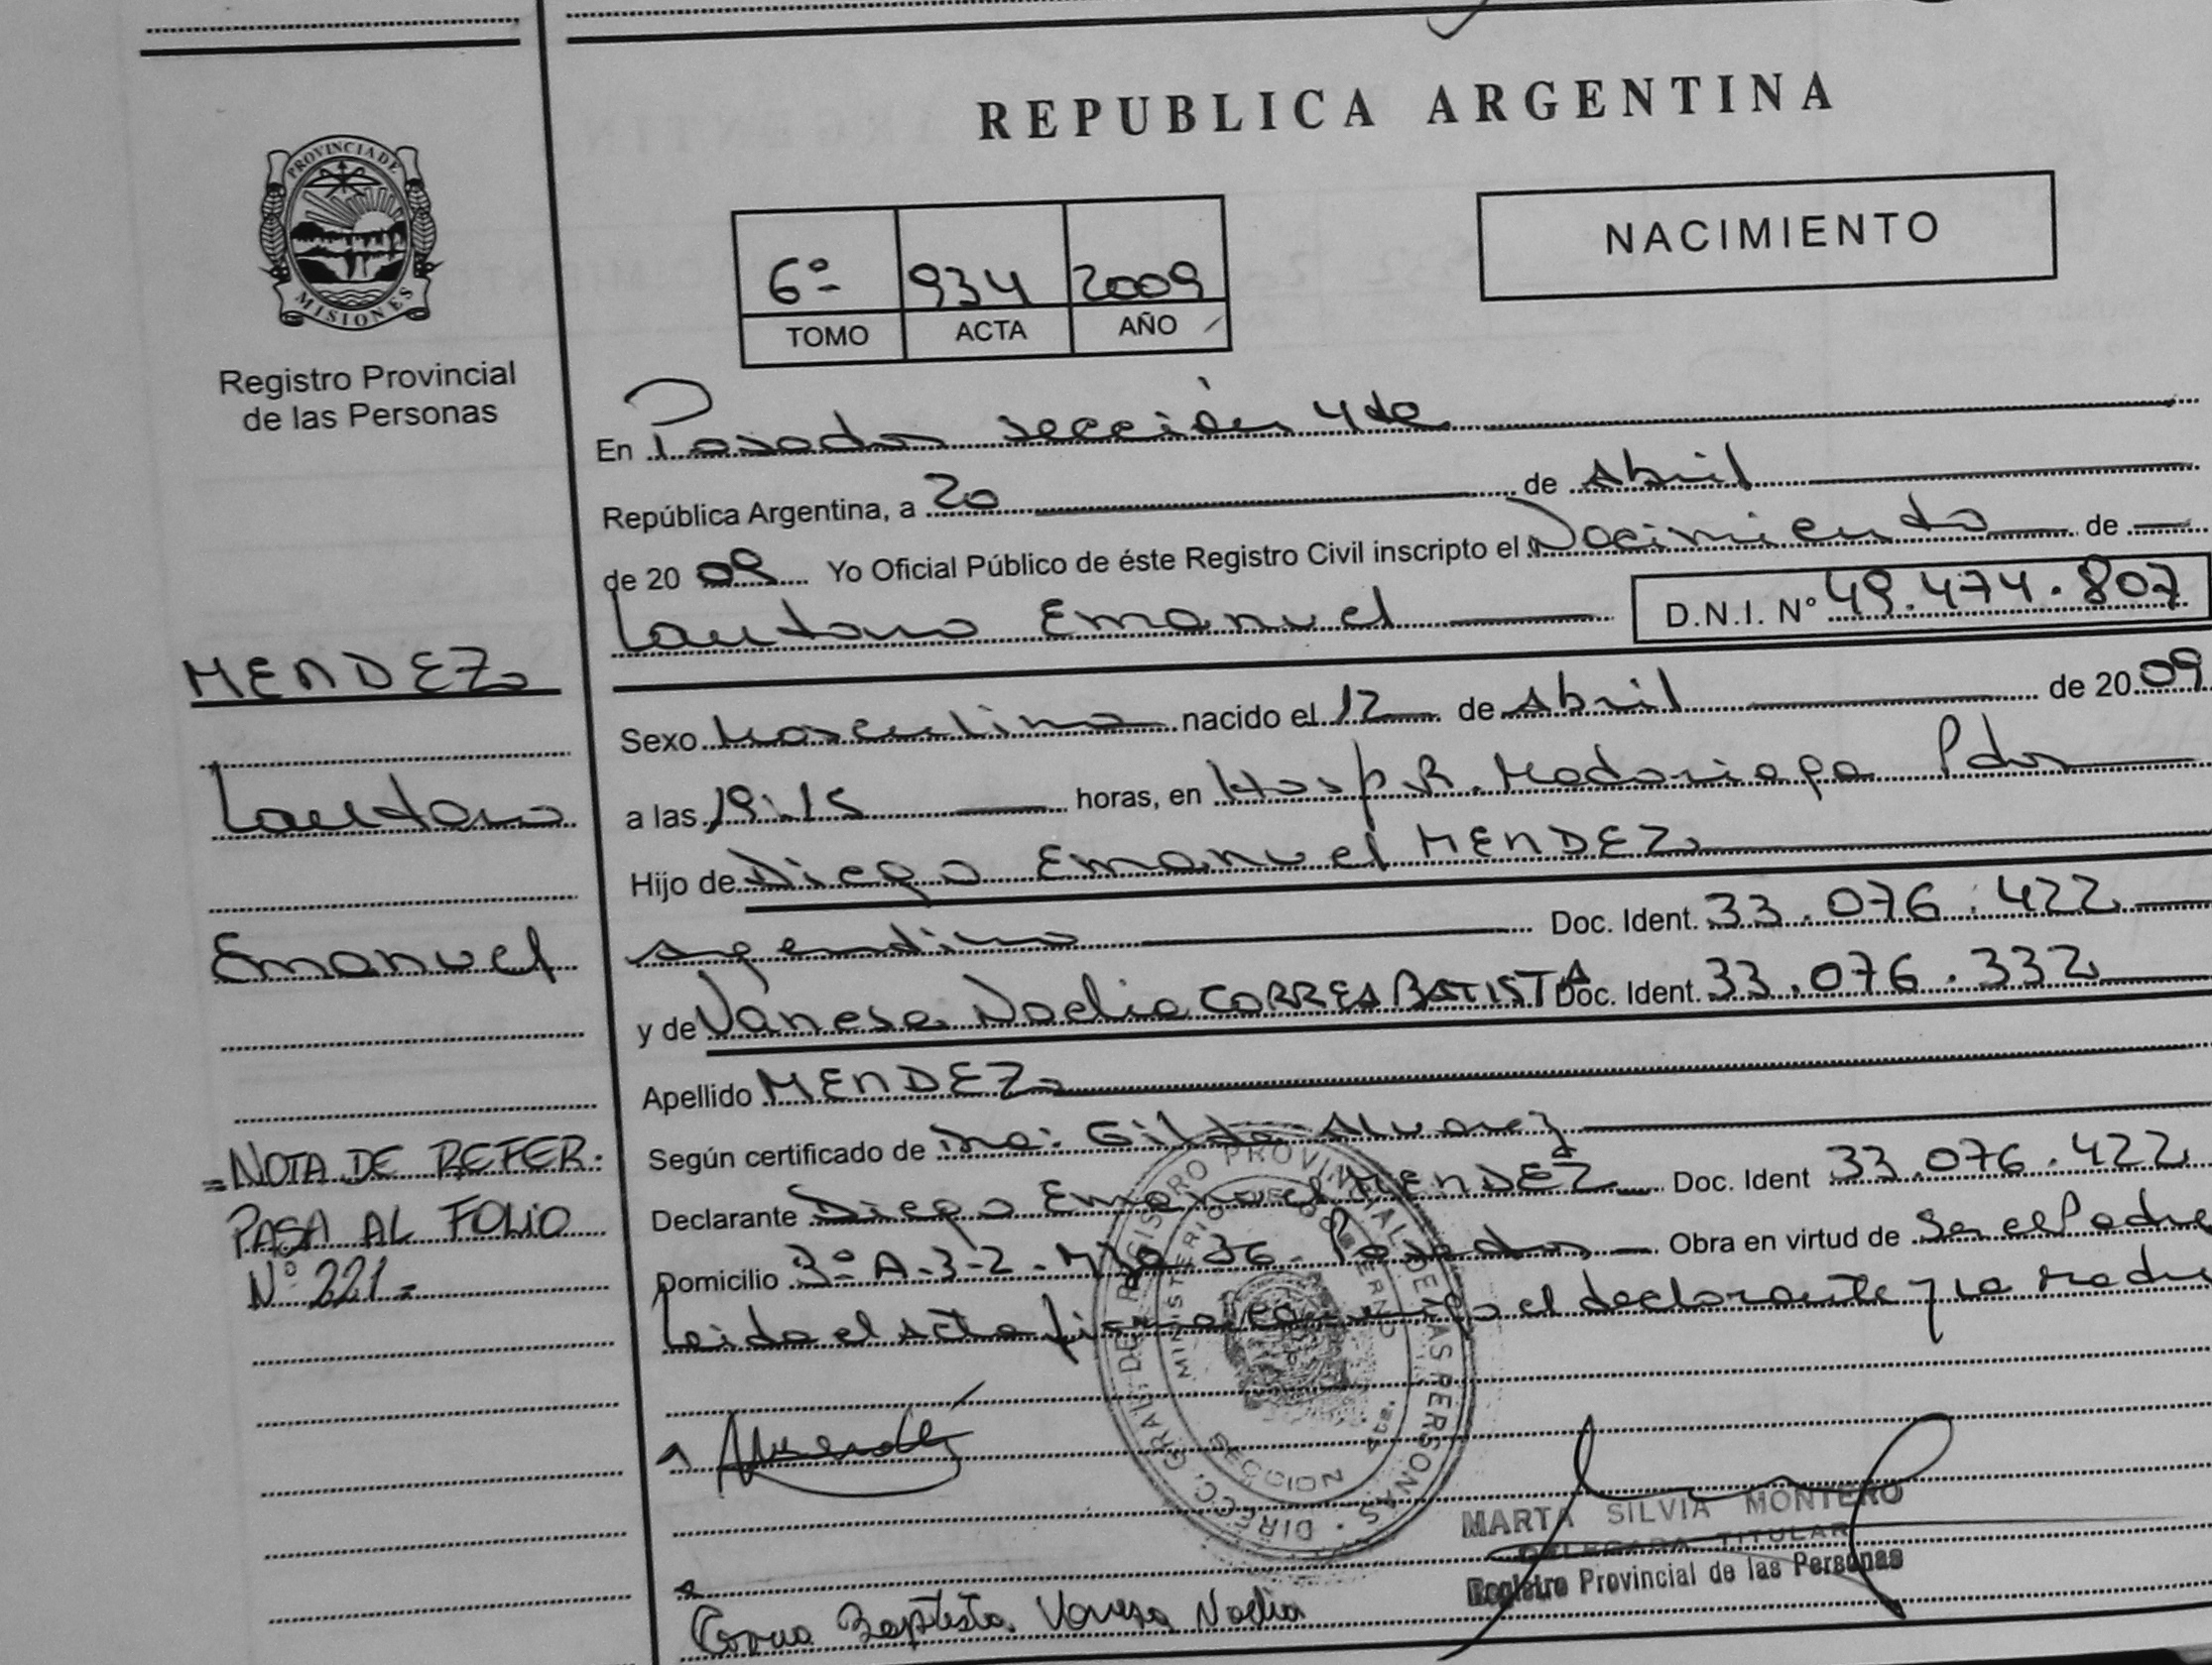 REPUBLICA ARGENTINA
PROVINCIA DE
MISIONES
Registro Provincial
de las Personas
NACIMIENTO
6º 934 2009
TOMO ACTA AÑO
En Posadas sección 4ta
República Argentina, a 20 de Abril
de 2009 Yo Oficial Público de éste Registro Civil inscripto el Nacimiento de
Lautaro Emanuel D.N.I. Nº 49.474.807
MENDEZ
Lautaro
Emanuel
Sexo Masculino nacido el 12 de Abril de 2009
a las 19:15 horas, en Hosp. R. Madariaga Pdas
Hijo de Diego Emanuel MENDEZ
Argentino Doc. Ident. 33.076.422
y de Vanesa Noelia CORREA BATISTA Doc. Ident. 33.076.332
Apellido MENDEZ
Según certificado de Dra: Gilda Alvarez
Declarante Diego Emanuel MENDEZ Doc. Ident 33.076.422
Domicilio 3º A-3-2- 36- Posadas Obra en virtud de Ser el Padre
Leida el acta firma conmigo el declarante y la madre
=NOTA DE REFER.
PASA AL FOLIO
Nº 221=
DIRECC. GRAL. DE REGISTRO PROVINCIAL DE LAS PERSONAS
MINISTERIO DE GOBIERNO
MARTA SILVIA MONTERO
DELEGADA TITULAR
Registro Provincial de las Personas
Correa Baptista Vanesa Noelia